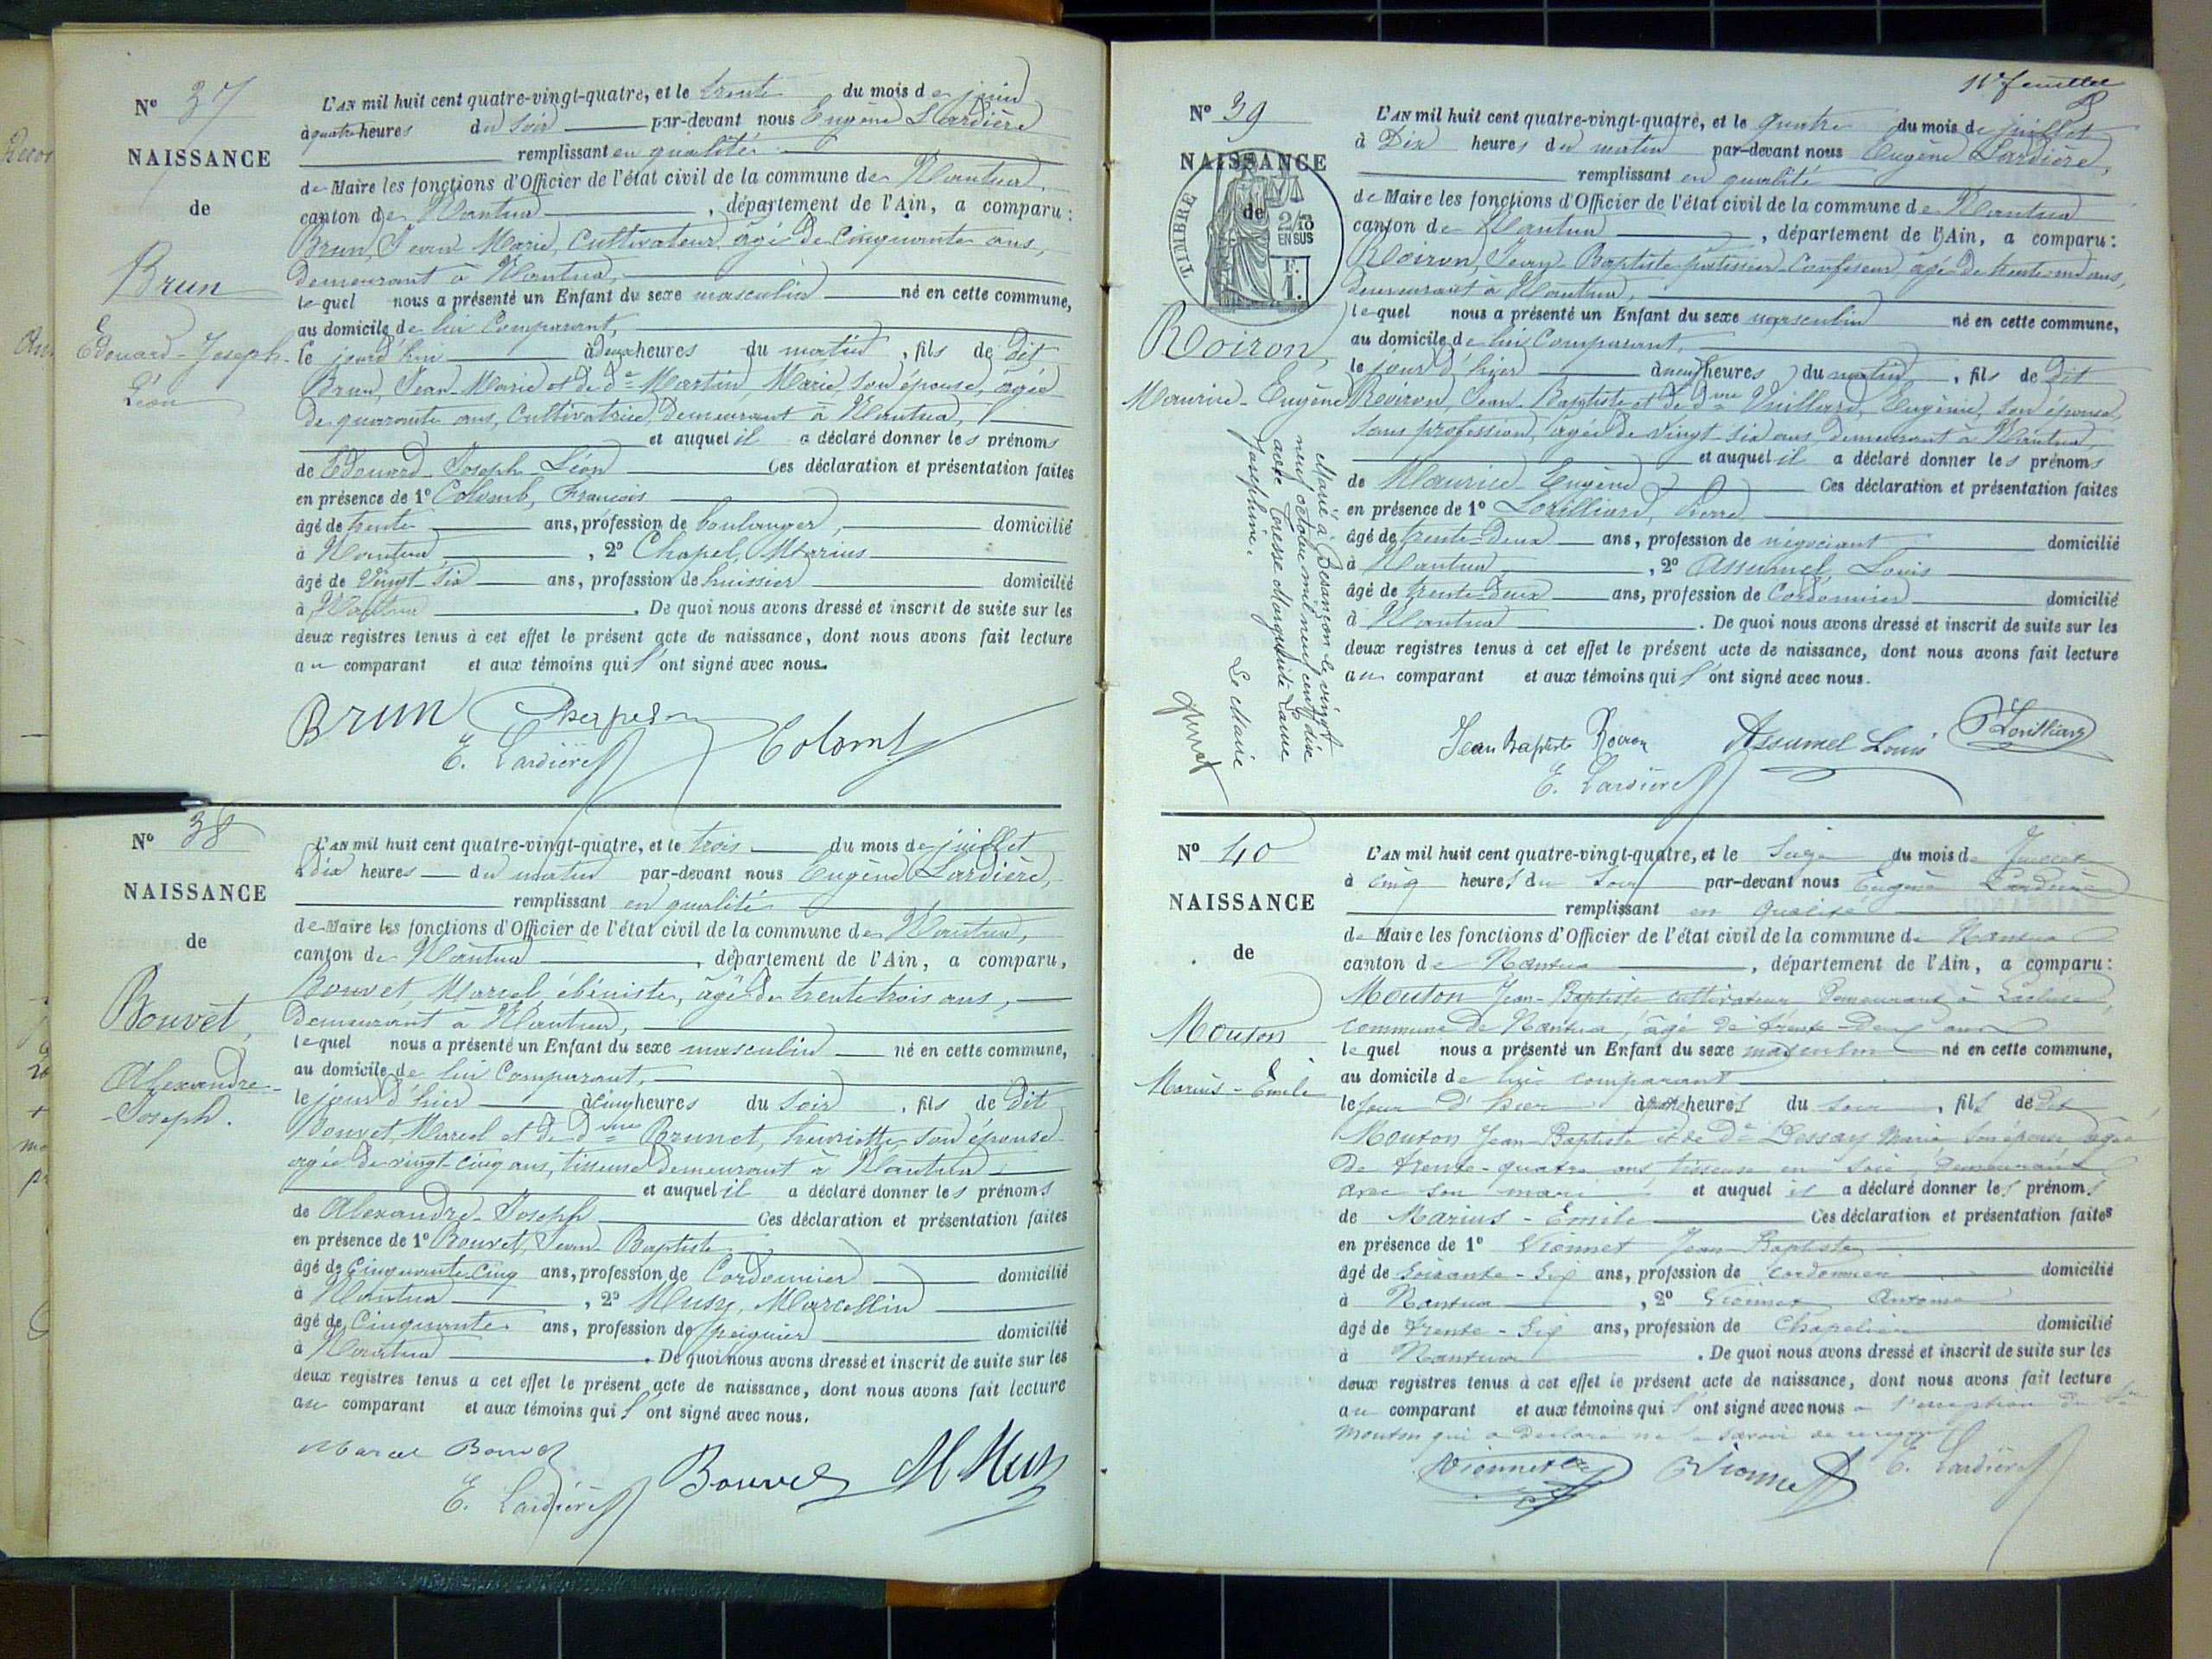 N° 37
NAISSANCE
de
Brun
Edouard-Joseph-
Léon
L'AN mil huit cent quatre-vingt-quatre, et le trente du mois de juin
à quatre heures du soir par-devant nous Eugène Lardière
remplissant en qualité
de Maire les fonctions d'Officier de l'état civil de la commune de Nantua
canton de Nantua, département de l'Ain, a comparu :
Brun, Jean Marie, Cultivateur, âgé de Cinquante ans,
demeurant à Nantua,
lequel nous a présenté un Enfant du sexe masculin né en cette commune,
au domicile de lui Comparant,
le jourd'hui à deux heures du matin, fils de dit
Brun, Jean-Marie et de de Martin, Marie, son épouse, âgée
de quarante ans, Cultivatrice, demeurant à Nantua,
et auquel il a déclaré donner les prénoms
de Edouard-Joseph-Léon Ces déclaration et présentation faites
en présence de 1° Colomb, François
âgé de trente ans, profession de boulanger, domicilié
à Nantua, 2° Chapel, Marius
âgé de Vingt-six ans, profession de huissier domicilié
à Nantua. De quoi nous avons dressé et inscrit de suite sur les
deux registres tenus à cet effet le présent acte de naissance, dont nous avons fait lecture
au comparant et aux témoins qui l'ont signé avec nous.
Brun Colomb
E. Lardière
N° 38
NAISSANCE
de
Bouvet,
Alexandre-
-Joseph.
L'AN mil huit cent quatre-vingt-quatre, et le trois du mois de juillet
à dix heures du matin par-devant nous Eugène Lardière,
remplissant en qualité
de Maire les fonctions d'Officier de l'état civil de la commune de Nantua,
canton de Nantua, département de l'Ain, a comparu,
Bouvet, Marcel, ébéniste, âgé de trente trois ans,
demeurant à Nantua,
lequel nous a présenté un Enfant du sexe masculin né en cette commune,
au domicile de lui Comparant,
le jour d'hier à Cinq heures du soir, fils de dit
Bouvet, Marcel et de dme Brunet, henriette son épouse
âgée de vingt-cinq ans, tisseuse demeurant à Nantua
et auquel il a déclaré donner les prénoms
de Alexandre-Joseph Ces déclaration et présentation faites
en présence de 1° Bouvet, Jean-Baptiste
âgé de Cinquante-cinq ans, profession de Cordonnier domicilié
à Nantua, 2° Musy, Marcellin
âgé de Cinquante ans, profession de peignier domicilié
à Nantua. De quoi nous avons dressé et inscrit de suite sur les
deux registres tenus à cet effet le présent acte de naissance, dont nous avons fait lecture
au comparant et aux témoins qui l'ont signé avec nous.
Marcel Bouvet
E. Lardière Bouvet M Musy
11e feuillet
N° 39
NAISSANCE
de
TIMBRE
2/10
EN SUS
F.
1.
Roiron,
Maurice-Eugène
Marié à Besançon le vingt
neuf octobre mil neuf cent dix
avec Toresse Marguerite Laure
Joséphine.
Le Maire
L'AN mil huit cent quatre-vingt-quatre, et le quatre du mois de juillet
à Dix heures du matin par-devant nous Eugène Lardière,
remplissant en qualité
de Maire les fonctions d'Officier de l'état civil de la commune de Nantua
canton de Nantua, département de l'Ain, a comparu :
Roiron, Jean-Baptiste patissier Confiseur âgé de trente ans,
demeurant à Nantua,
lequel nous a présenté un Enfant du sexe masculin né en cette commune,
au domicile de lui Comparant,
le jour d'hier à neuf heures du matin, fils de dit
Roiron, Jean-Baptiste et de dme Vuillard, Eugénie, son épouse,
sans profession, âgée de vingt-six ans, demeurant à Nantua,
et auquel il a déclaré donner les prénoms
de Maurice-Eugène Ces déclaration et présentation faites
en présence de 1° Lorilliard, Pierre
âgé de trente-deux ans, profession de négociant domicilié
à Nantua, 2° Assumel, Louis
âgé de trente-deux ans, profession de Cordonnier domicilié
à Nantua. De quoi nous avons dressé et inscrit de suite sur les
deux registres tenus à cet effet le présent acte de naissance, dont nous avons fait lecture
au comparant et aux témoins qui l'ont signé avec nous.
Jean Baptiste Roiron Assumel Louis P Lorilliard
E. Lardière
N° 40
NAISSANCE
de
Mouton
Marius-Emile
L'AN mil huit cent quatre-vingt-quatre, et le Seize du mois de Juillet
à cinq heures du Soir par-devant nous Eugène Lardière
remplissant en qualité
de Maire les fonctions d'Officier de l'état civil de la commune de Nantua
canton de Nantua, département de l'Ain, a comparu :
Mouton Jean-Baptiste cultivateur Demeurant à
commune de Nantua, âgé de trente-Deux ans
lequel nous a présenté un Enfant du sexe masculin né en cette commune,
au domicile de lui comparant
le jour d'hier à heures du soir, fils de dit
Mouton Jean-Baptiste et de De Dessay Marie Son épouse âgée
de trente-quatre ans, tisseuse en soie, Demeurant
avec son mari et auquel il a déclaré donner les prénoms
de Marius-Emile Ces déclaration et présentation faites
en présence de 1° Vionnet Jean-Baptiste
âgé de soixante-six ans, profession de cordonnier domicilié
à Nantua, 2° Vionnet Antoine
âgé de trente-six ans, profession de Chapelier domicilié
à Nantua. De quoi nous avons dressé et inscrit de suite sur les
deux registres tenus à cet effet le présent acte de naissance, dont nous avons fait lecture
au comparant et aux témoins qui l'ont signé avec nous à l'exception du
Mouton qui a déclaré ne le savoir de ce requis
Vionnet Vionnet E. Lardière